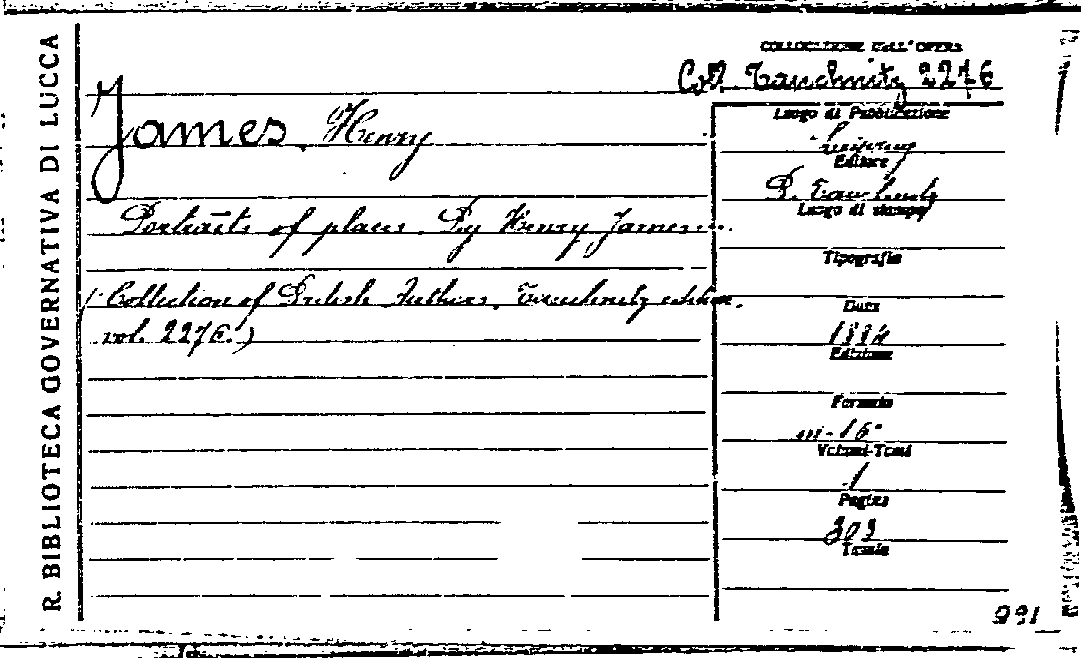 R. BIBLIOTECA GOVERNATIVA DI LUCCA
COLLOCAZIONE DELL'OPERA
Coll. Tauchnitz 2276
James, Henry
Portraits of places. By Henry James...
(Collection of British Authors. Tauchnitz edition.
vol. 2276.)
Luogo di Pubblicazione
Leipzig
Editore
B. Tauchnitz
Luogo di stampa
Tipografia
Data
1884
Edizione
Formato
in-16°
Volumi-Tomi
1
Pagine
303
Tavole